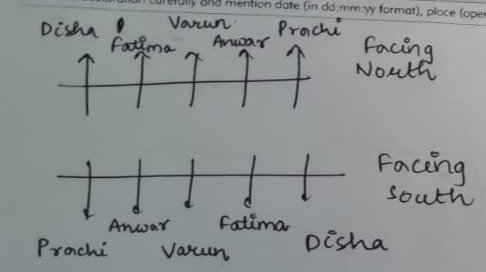 declaration carefully and mention date (in dd:mm:yy format), place (oper
Disha Fatima Varun Anwar Prachi
Facing
North
Facing
South
Prachi Anwar Varun Fatima Disha